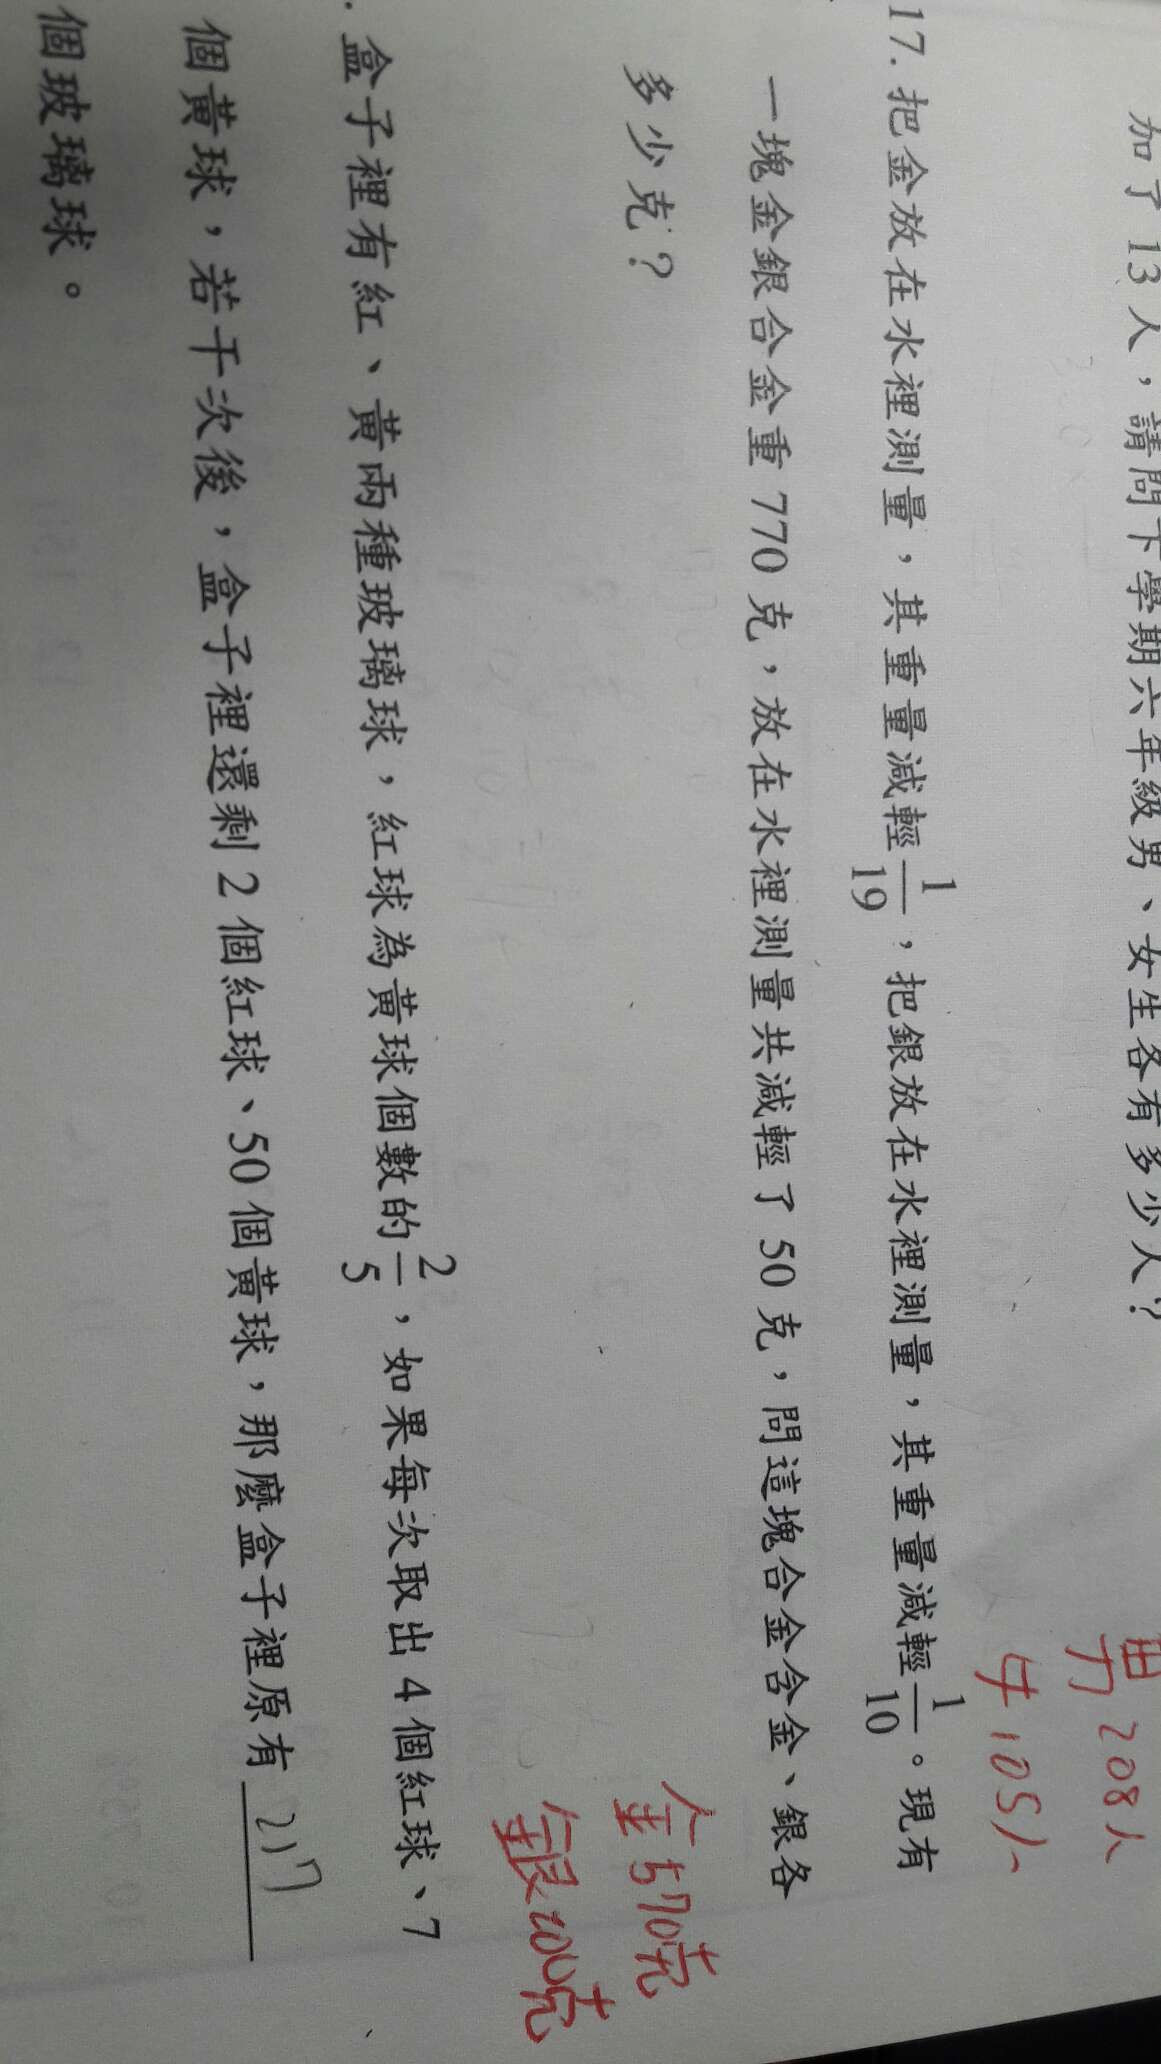 加了13人，請問下學期六年級男、女生各有多少人？
男208人
女105人
17. 把金放在水裡測量，其重量減輕1/19，把銀放在水裡測量，其重量減輕1/10。現有
一塊金銀合金重770克，放在水裡測量共減輕了50克，問這塊合金含金、銀各
多少克？
金570克
銀200克
. 盒子裡有紅、黃兩種玻璃球，紅球為黃球個數的2/5，如果每次取出4個紅球、7
個黃球，若干次後，盒子裡還剩2個紅球、50個黃球，那麼盒子裡原有 217
個玻璃球。